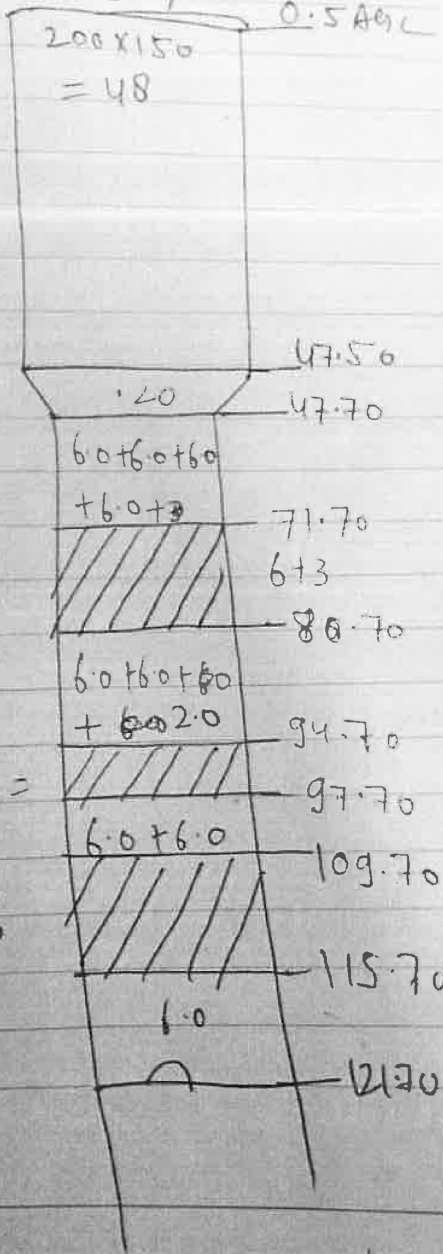 0.5 AGL
200x150
= 48
47.50
.20
47.70
6.0+6.0+60
+6.0+3
71.70
6+3
80.70
6.0+6.0+60
+ 2.0
94.70
=
97.70
6.0+6.0
109.70
115.70
6.0
121.70